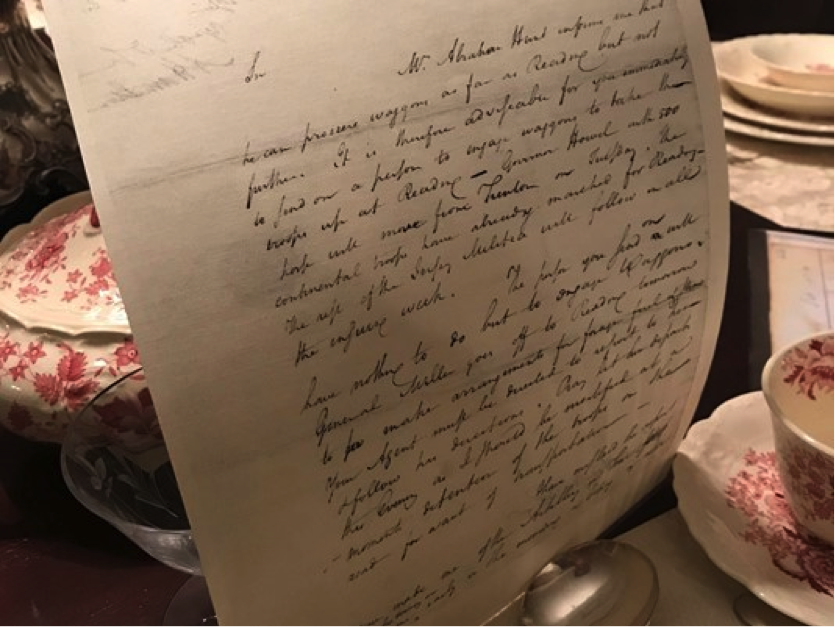 Sir
Mr. Abraham Hunt informs me that
he can procure waggons as far as Reading but not
further. It is therefore adviseable for you immediately
to send on a person to engage waggons to take the
troops up at Reading — Governor Howel with 500
horse will move from Trenton on Tuesday. The
continental troops have already marched for Reading
The rest of the Jersey Militia will follow in all
the ensuing week. The person you send on will
have nothing to do but to engage Waggons.
General Miller goes off to Reading tomorrow
to make arrangements for forage fuel
Your Agent must be directed to report to him
& follow his directions. Pray let him depart
this Evening as I should be mortified at a
moments detention of the troops on their
rout for want of transportation —
of the Artillery
in the morning